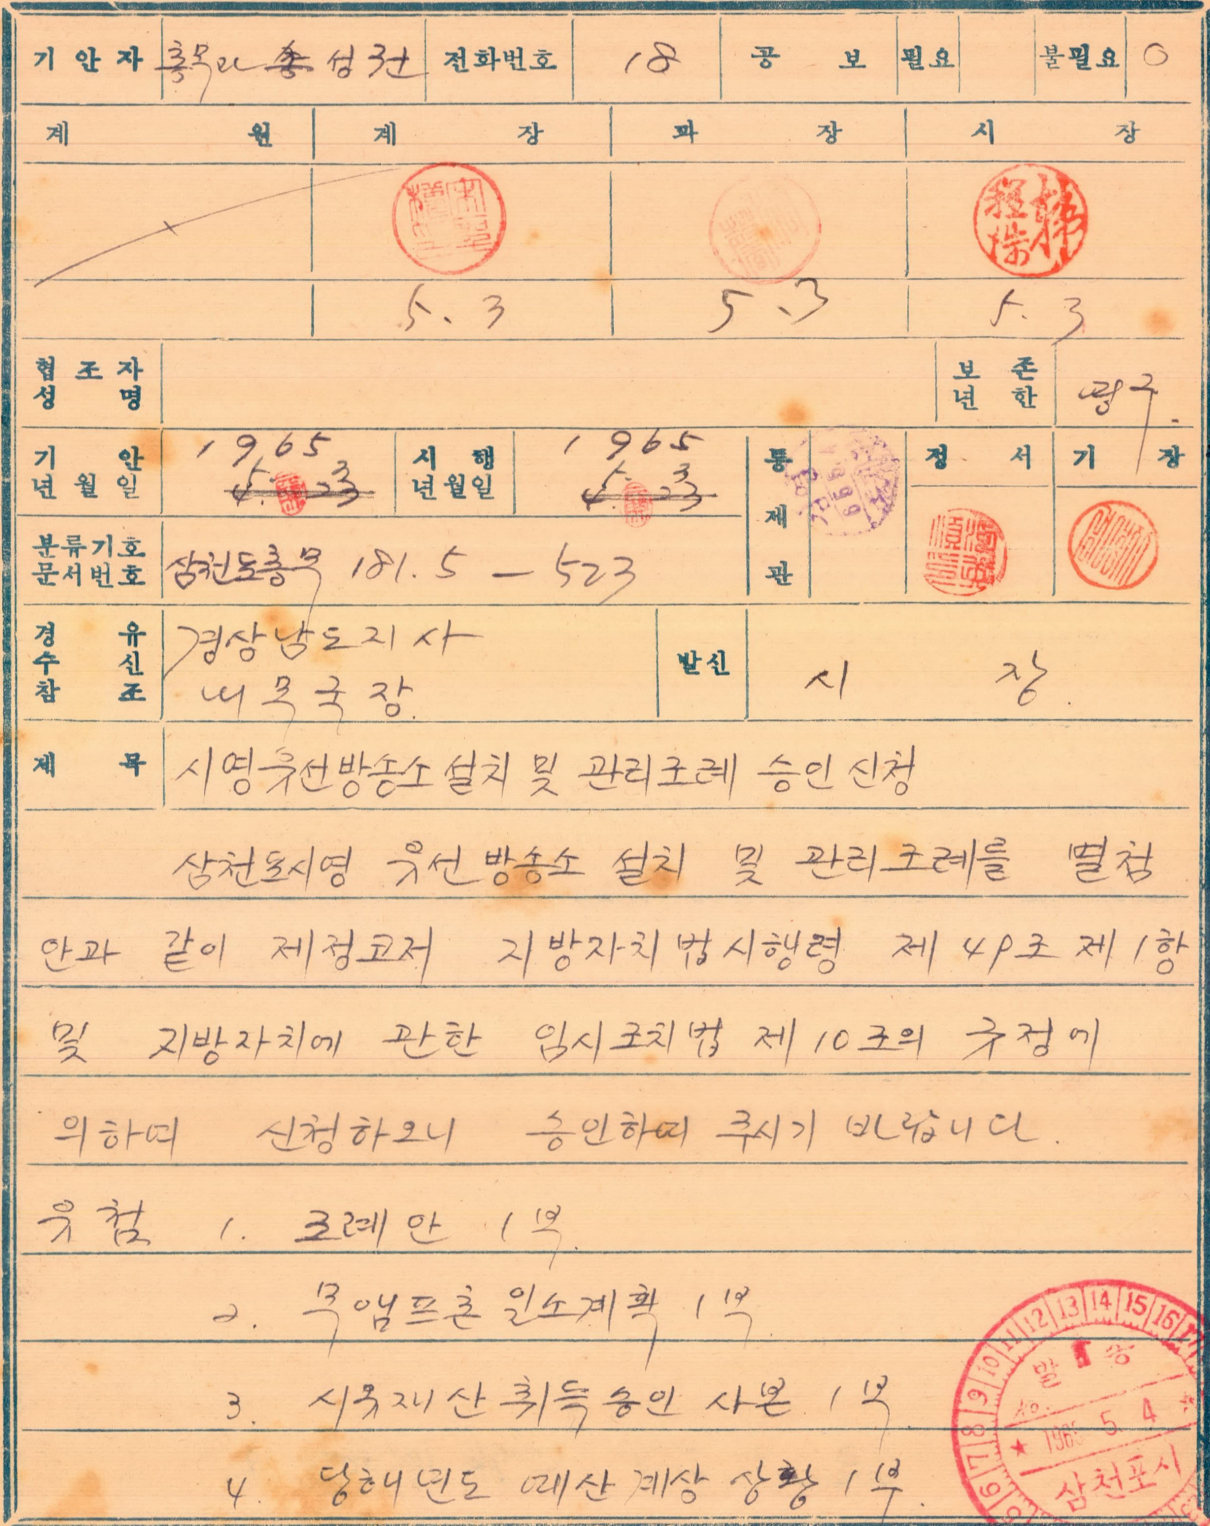 기안자 총무과 송성권 전화번호 18 공보 필요 불필요 ○
계원 계장 과장 시장
5. 3 5. 3 5. 3
협조자 성명 보존년한 영구.
기안년월일 1965 5. 3 4. 23 시행년월일 1965 5. 3 4. 23 통제관 정서 기장
분류기호 문서번호 삼천포총무 181.5 — 523
경유 수신 참조 경상남도지사 발신 시장.
내무국장.
제목 시영유선방송소 설치 및 관리조례 승인 신청
삼천포시영 유선방송소 설치 및 관리조례를 별첨
안과 같이 제정코저 지방자치법시행령 제49조 제1항
및 지방자치에 관한 임시조치법 제10조의 규정에
의하여 신청하오니 승인하여 주시기 바랍니다.
유첨 1. 조례안 1부.
2. 무앰프촌 일소계획 1부.
3. 시유재산 취득 승인 사본 1부.
4. 당해년도 예산계상 상황 1부.
6 7 8 9 10 11 12 13 14 15 16 17
발송
★ 1965 5. 4
삼천포시